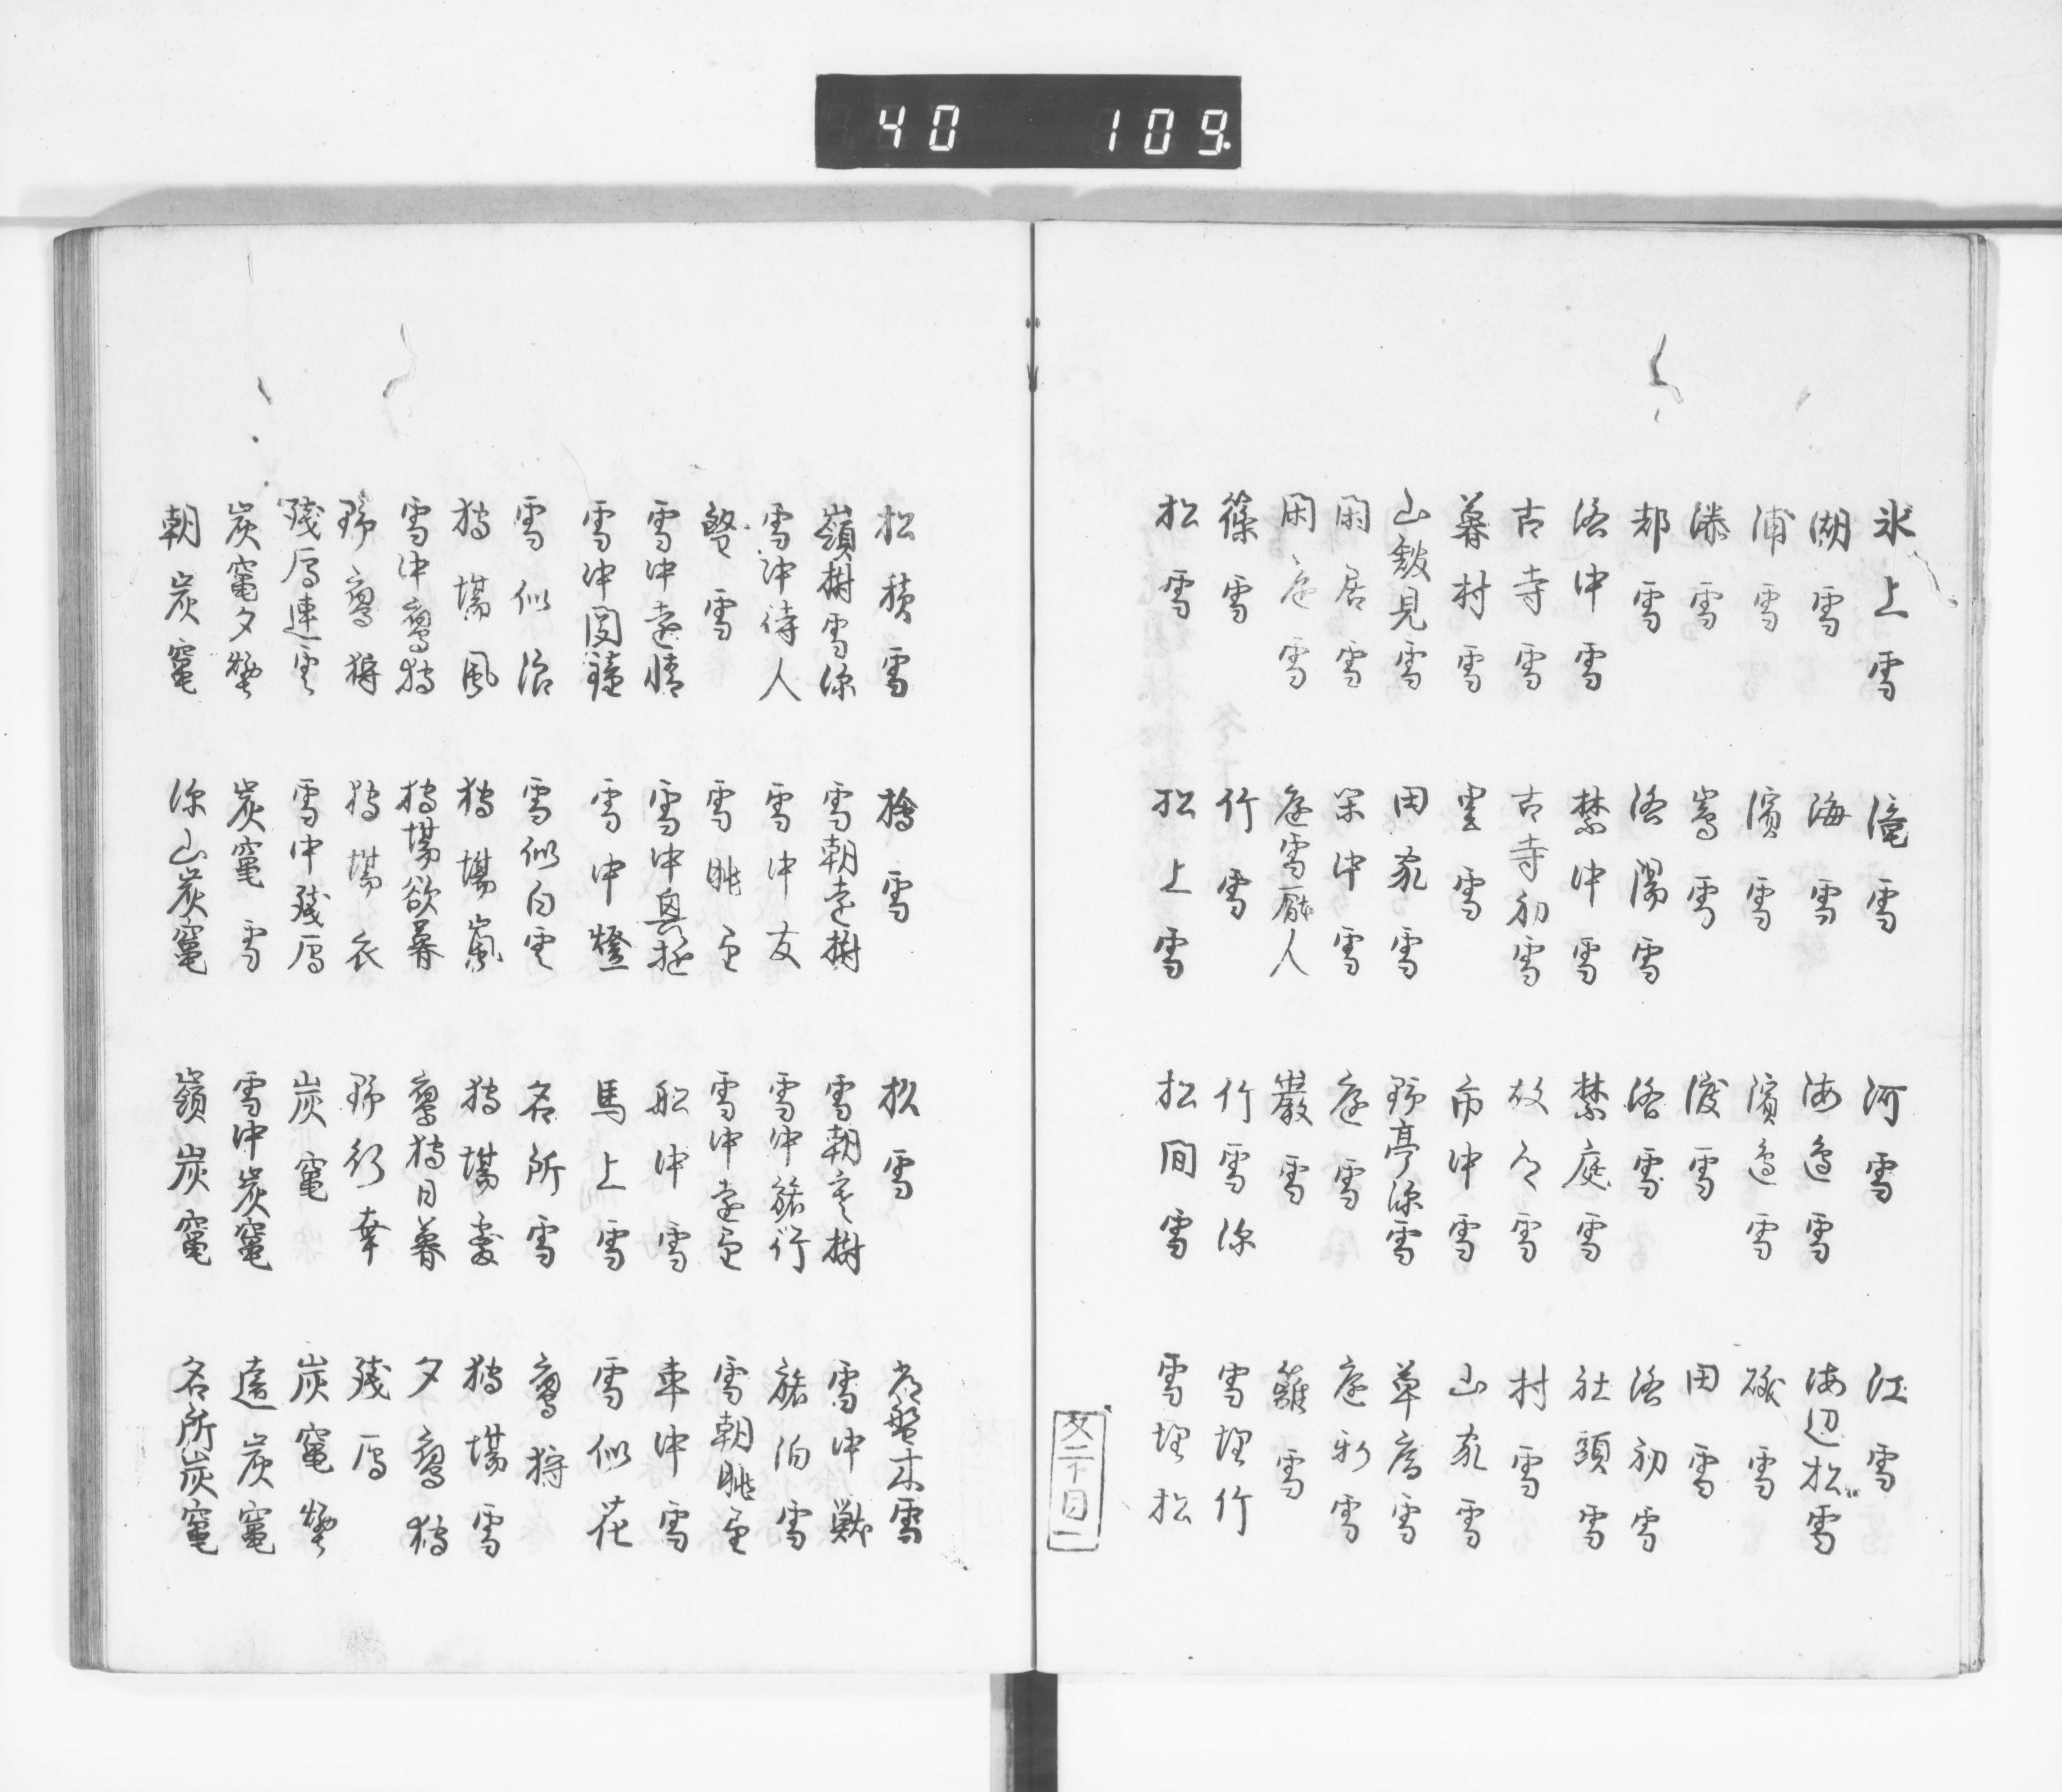 40 109
氷上雪 滝雪 河雪 江雪
湖雪 海雪 海邊雪 海辺松雪
浦雪 濱雪 濱邊雪 礒雪
湊雪 嶋雪 渡雪 田雪
都雪 洛陽雪 洛雪 洛初雪
洛中雪 禁中雪 禁庭雪 社頭雪
古寺雪 古寺初雪 故郷雪 村雪
暮村雪 里雪 市中雪 山家雪
山皴見雪 田家雪 野亭深雪 草庵雪
閑居雪 閑中雪 庭雪 庭新雪
閑庭雪 庭雪厭人 巌雪 籬雪
篠雪 竹雪 竹雪深 雪埋竹
松雪 松上雪 松間雪 雪埋松
松積雪 檜雪 杉雪 常盤木雪
嶺樹雪深 雪朝遠樹 雪朝寒樹 雪中獣
雪中待人 雪中友 雪中旅行 旅泊雪
雪 雪眺望 雪中遠望 雪朝眺望
雪中遠情 雪中興遊 船中雪 車中雪
雪中聞鐘 雪中燈 馬上雪 雪似花
雪似浪 雪似白雲 名所雪 鷹狩
狩場風 狩場嵐 狩場霰 狩場雪
雪中鷹狩 狩場欲暮 鷹狩日暮 夕鷹狩
野鷹狩 狩場衣 野行幸 残鴈
残鴈連雲 雪中残鴈 炭竃 炭竃煙
炭竃夕煙 炭竃雪 雪中炭竃 遠炭竃
朝炭竃 深山炭竃 嶺炭竃 名所炭竃